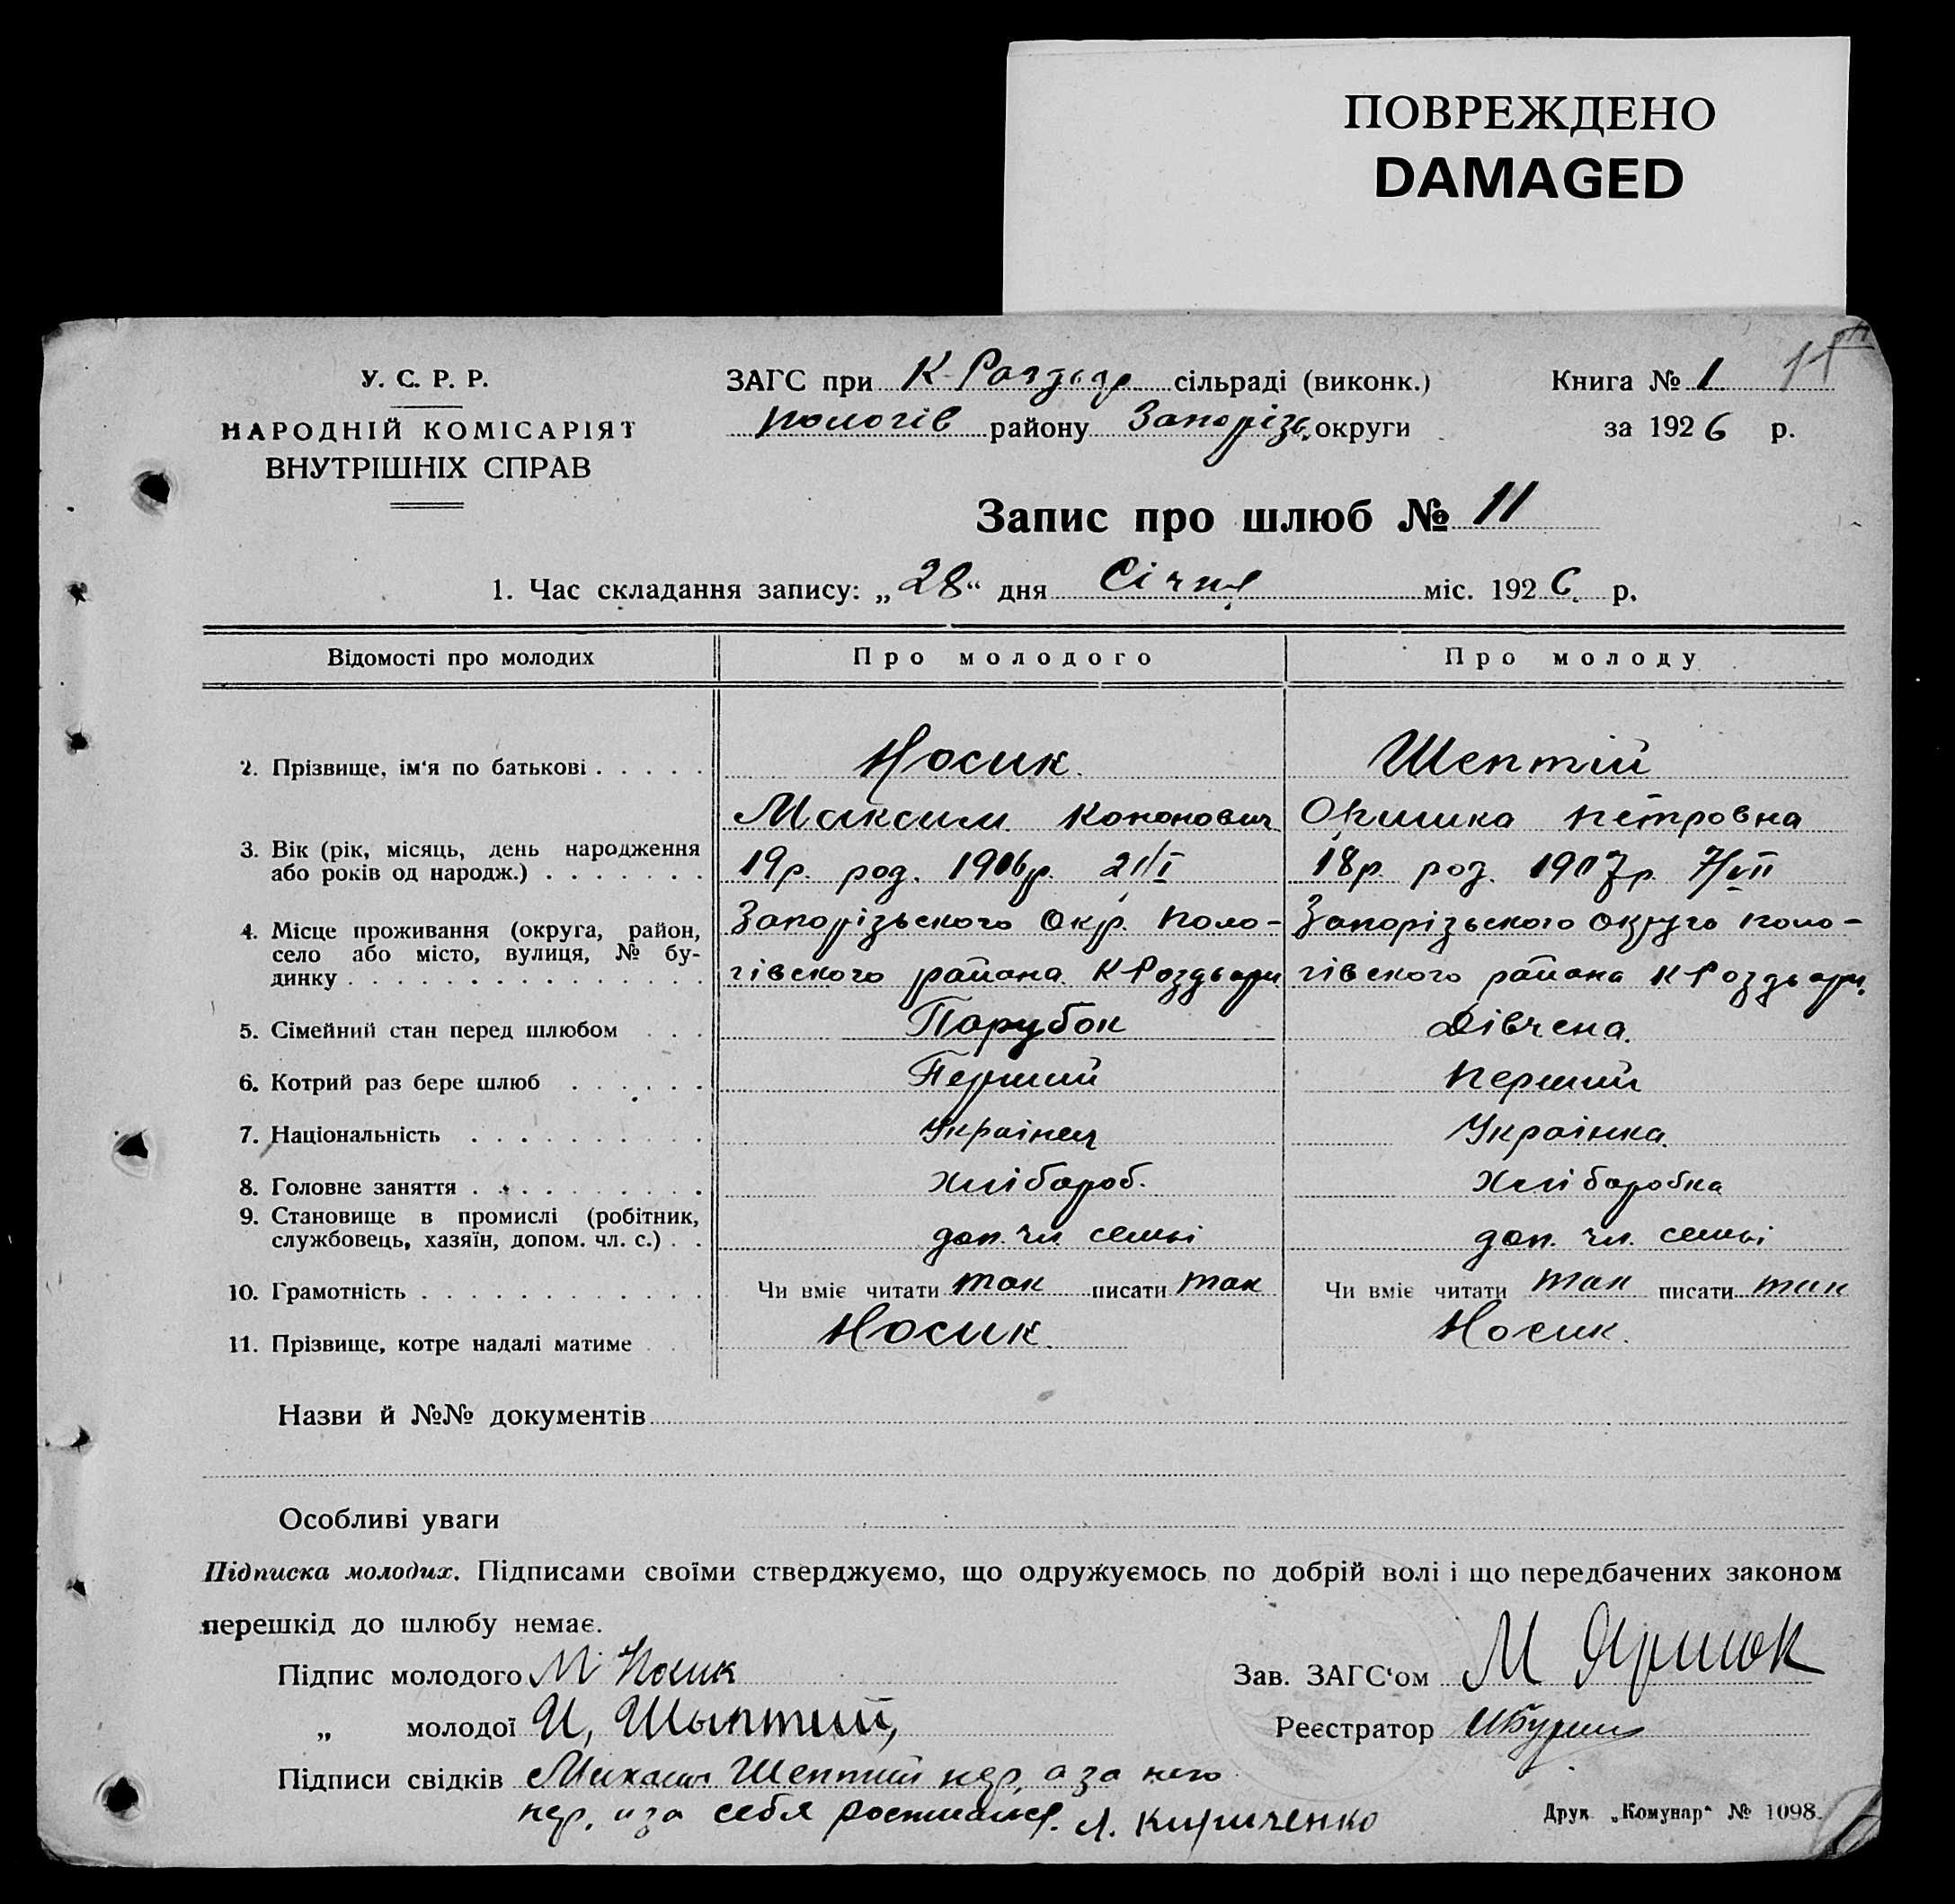 ПОВРЕЖДЕНО
DAMAGED
У. С. Р. Р.
НАРОДНІЙ КОМІСАРІЯТ
ВНУТРІШНІХ СПРАВ
ЗАГС при К-Роздор сільраді (виконк.)
Пологів району Запорізь. округи
Книга № 1 11
за 1926 р.
Запис про шлюб № 11
1. Час складання запису: „28“ дня Січня міс. 1926. р.
Відомості про молодих Про молодого Про молоду
2. Прізвище, ім'я по батькові Носик Шептій
Максим Кононович Оришка Петровна
3. Вік (рік, місяць, день народження
або років од народж.) 19р. род. 1906р. 21/I 18р. род. 1907р 7/VII
4. Місце проживання (округа, район, Запорізьского Окр. Поло- Запорізьского Округа Поло-
село або місто, вулиця, № бу-
динку гівского района К Роздори гівского района К Роздори.
5. Сімейний стан перед шлюбом Парубок Дівчена.
6. Котрий раз бере шлюб Перший Перший
7. Національність Українец Українка.
8. Головне заняття Хлібороб. Хліборобка
9. Становище в промислі (робітник,
службовець, хазяїн, допом. чл. с.) доп. чл. семьі доп. чл. семьі
10. Грамотність Чи вміє читати так писати так Чи вміє читати так писати так
11. Прізвище, котре надалі матиме Носик. Носик.
Назви й №№ документів
Особливі уваги
Підписка молодих. Підписами своїми стверджуємо, що одружуємось по добрій волі і що передбачених законом
перешкід до шлюбу немає.
Підпис молодого М Носик
Зав. ЗАГС'ом М
„ молодої И, Шыптий,
Реєстратор
Підписи свідків Михаил Шептий нгр, а за него
нгр. и за себя росписался. А. Кириченко
Друк „Комунар“ № 1098.